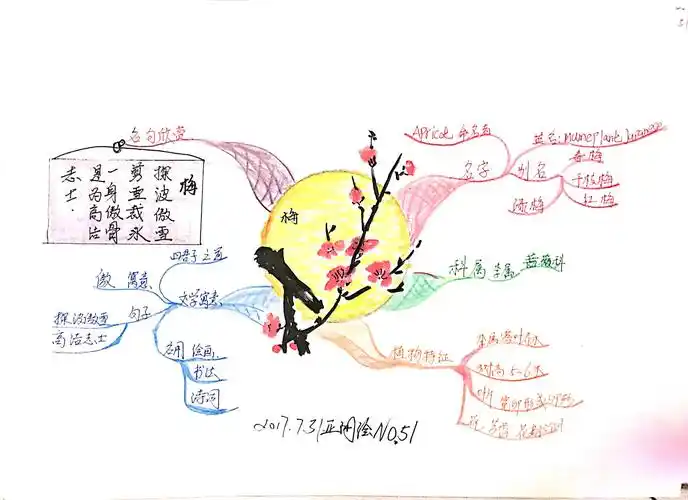 名句欣赏
梅
探波傲雪
剪雪裁冰
一身傲骨
是为高洁
志士.
梅
Apricot 命名者
名字
别名
英名: Mumeplant
春梅
干枝梅
红梅
绿梅
科属
李属
蔷薇科
植物特征
李属落叶乔木
树高 5-6米
叶
花:芳香
文学寓意
四君子之首
寓意
傲
句子
探波傲雪
高洁志士
应用
绘画
书法
诗词
2017.7.31 亚闲绘 NO.51